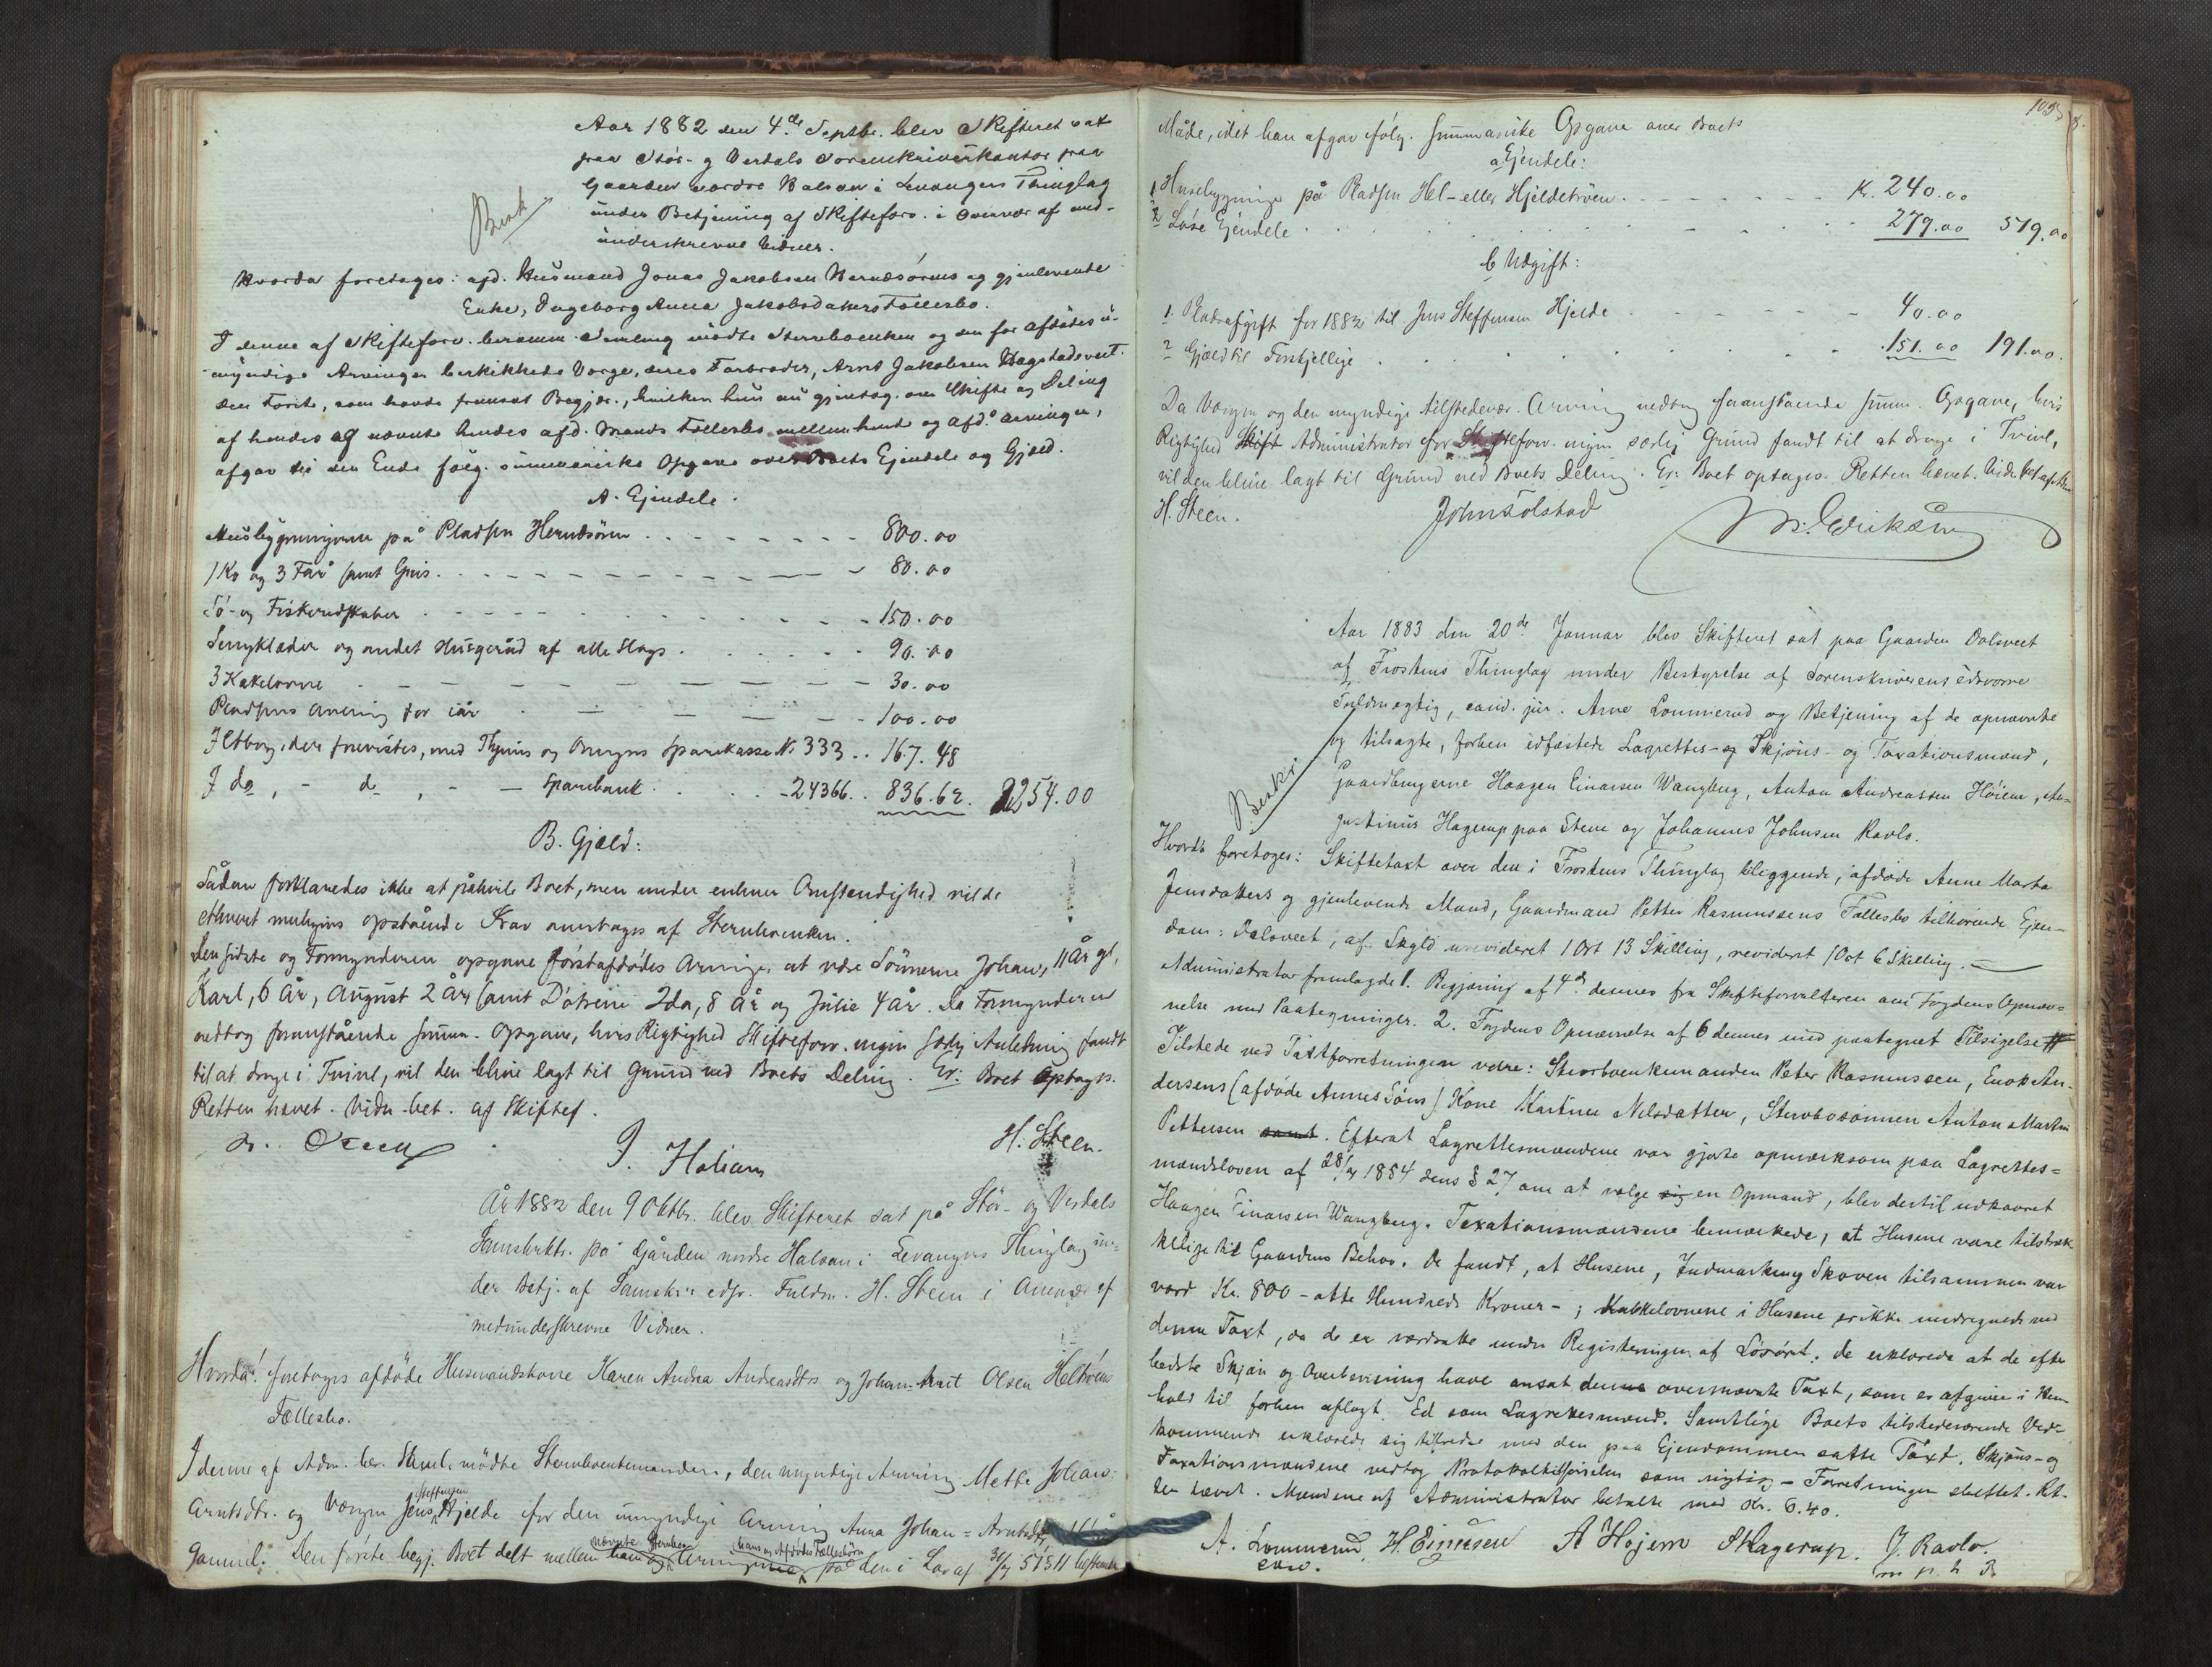 Aar 1882 den 4de Septbr. blev Skifteret sat
paa Stør- og Verdals Sorenskriverkontor paa
Gaarden nordre Halsan i Levangers Thinglag
under Betjening af Skifteforv. i Overvær af med-
underskrevne Vidner.
Besk
Hvorda foretoges: afd. Husmand Jonas Jakobsen Hernæsørens og gjenlevende
Enke, Ingeborg Anna Jakobsdatters Fællesbo.
I denne af Skifteforv. beramm. Samling mødte Stervboenken og den for afdødes u-
myndige Arvinger beskikkede Værge, deres Farbroder, Arnt Jakobsen Hagstadsvert.
Den første, som havde fremsat Begjær., hvilken hun nu gjentog. om Skifte og Deling
af hendes og nævnte hendes afd. Mands Fællesbo mellem hende og afd.s arvinger,
afgav til den Ende følg. summariske Opgave over Boets Ejendele og Gjæld.
A. Ejendele.
Husbygningerne på Pladsen Hernæsören . . . . . . . . 800.00
1 Ko og 3 Får samt Gris . . . . . . . . 80.00
Sø- og Fiskeredskaber . . . . . . . . 150.00
Sengklæder og andet Husgeråd af alle Slags . . . . . . 90.00
3 Kakelovne . . . . . . . . 30.00
Pladsens avling for iår . . . . . . 100.00
I Ktbog, der forevistes, med Thjems og Omegns Sparekasse No 333 . . 167.48
I do, - do, - - Sparebank . . . - 24366 . . 836.62. 2254.00
B. Gjæld:
Sådan forklaredes ikke at påhvile Boet, men under enhver Omstændighed vilde
ethvert muligens opstående Krav overtages af Stervboenken.
Den sidste og Formynderen opgave førstafdødes Arvinger at være Sønnerne Johan, 11 År gl,
Karl, 6 År, August 2 År, samt Døtrene Ida, 8 År og Julie 4 År. Da Formynderen
vedtog foranstående summ. Opgave, hvis Rigtighed Skifteforv. ingen særlig Anledning fandt
til at drage i Tvivl, vil den blive lagt til Grund ved Boets Deling. Er: Boet optages.
Retten hævet. Vidn. bet. af Skiftef.
H. Steen.
P. Halsan
År 1882 den 9 Oktbr. blev Skifteret sat på Stør- og Verdals
Sorenskrktr. på Gården nordre Halsan i Levangers Thinglag un-
der Betj. af Sorenskr.s edsv. Fuldm. H. Steen i Overvær af
medunderskrevne Vidner.
Hvorda: foretoges afdøde Husmandskone Karen Andrea Andreasdtrs og Johan Arnt Olsen Heltrøens
Fællesbo.
I denne af Adm. ber. Saml. mødte Stervboenkemanden, den myndige Arving Mette Johan-
Arntsdtr. og Værgen Jens Steffensen Hjelde for den umyndige Arving Anna Johan-Arntsdtr, 16 År
Gammel. Den første begj. Boet delt mellem ham og nævnte Stervboes Arvingerne hans og Afdødes Fællesbörn på den i Lov af 30/7 51 § 11 bestemte
105
Måde, idet han afgav følg. summariske Opgave over Boets
a Ejendele:
1 Husebygninge på Pladsen Hel- eller Hjeldetrøen . . . . . . Kr. 240.00
2 Løse Ejendele . . . . . . . . 279.00 519.00
b Udgift:
1. Pladsafgift for 1882 til Jens Steffensen Hjelde . . . . . . 40.00
2 Gjæld til Forskjellige . . . . . . . . 151.00 191.00.
Da Værgen og den myndige tilstedevær. Arving vedtog foranstående summ. Opgave, hvis
Rigtighed Skift Administrator for Skifteforv. ingen særlig Grund fandt til at drage i Tvivl,
vil den blive lagt til Grund ved Boets Deling. Er: Boet optages. Retten hævet. Vidn. bet af
H. Steen. John Tolstad M. Eriksen
Aar 1883 den 20de Januar blev Skifteret sat paa Gaarden Dalsveet
af Frostens Thinglag under Bestyrelse af Sorenskriverens edsvorne
Fuldmægtig, cand. jur. Arne Lommerud og Betjening af de opnævnte
og tilsagte, forhen edfæstede Lagrettes- og Skjöns- og Taxationsmænd,
Gaardbrugerne Haagen Einarsen Wangberg, Anton Andreassen Höiem, Au-
gustinus Hagerup paa Stene og Johannes Johnsen Ravlo.
Beski
Hvorda foretoges: Skiftetaxt over den i Frostens Thinglag beliggende, afdöde Anne Marta
Jensdatters og gjenlevende Mand, Gaardmand Petter Rasmussens Fællesbo tilhörende Ejen-
dom: Dalsveet, af Skyld urevideret 1 Ort 13 Skilling, revideret 1 Ort 6 Skilling. —
Administrator fremlagde 1. Begjæring af 4de dennes fra Skifteforvalteren om Fogdens Opnæv-
nelse med Paategninger. 2. Fogdens Opnævnelse af 6 dennes med paategnet Tilsigelse
Tilstede ved Taxtforretningen være: Stervboenkemanden Peter Rasmussen, Enok An-
dersens (afdöde Annes Söns) Kone Martine Nilsdatter, Stervbosönnen Anton Martin
Pettersen samt. Efterat Lagrettesmændene var gjorte opmærksom paa Lagrettes-
mandsloven af 28/8 1854 dens § 27 om at vælge sig en Opmand, blev dertil udkaaret
Haagen Einarsen Wangberg. Taxationsmændene bemærkede, at Husene vare tilstræk
kelige til Gaardens Behov. De fandt, at Husene, Indmark og Skoven tilsammen var
værd Kr. 800 - otte Hundrede Kroner - ; Kakkelovnene i Husene er ikke medregnede ved
denne Taxt, da de er værdsatte under Registeringen af Lösöret; de erklærede at de efter
bedste Skjön og Overbevisning have ansat denne overnævnte Taxt, som er afgiven i Hen-
hold til forhen aflagt Ed som Lagrettesmænd. Samtlige Boets tilstedeværende Ved-
kommende erklærede sig tilfredse med den paa Ejendommen satte Taxt. Skjöns- og
Taxationsmændene vedtog Protokoltilförselen som rigtig — Forretningen sluttet. Ret-
ten hævet. Mændene af Administrator betalte med Kr. 6.40.
A. Lommerud, H. Einersen A Hojem A Hagerup. J. Ravlo.
edsv. m p. h P.